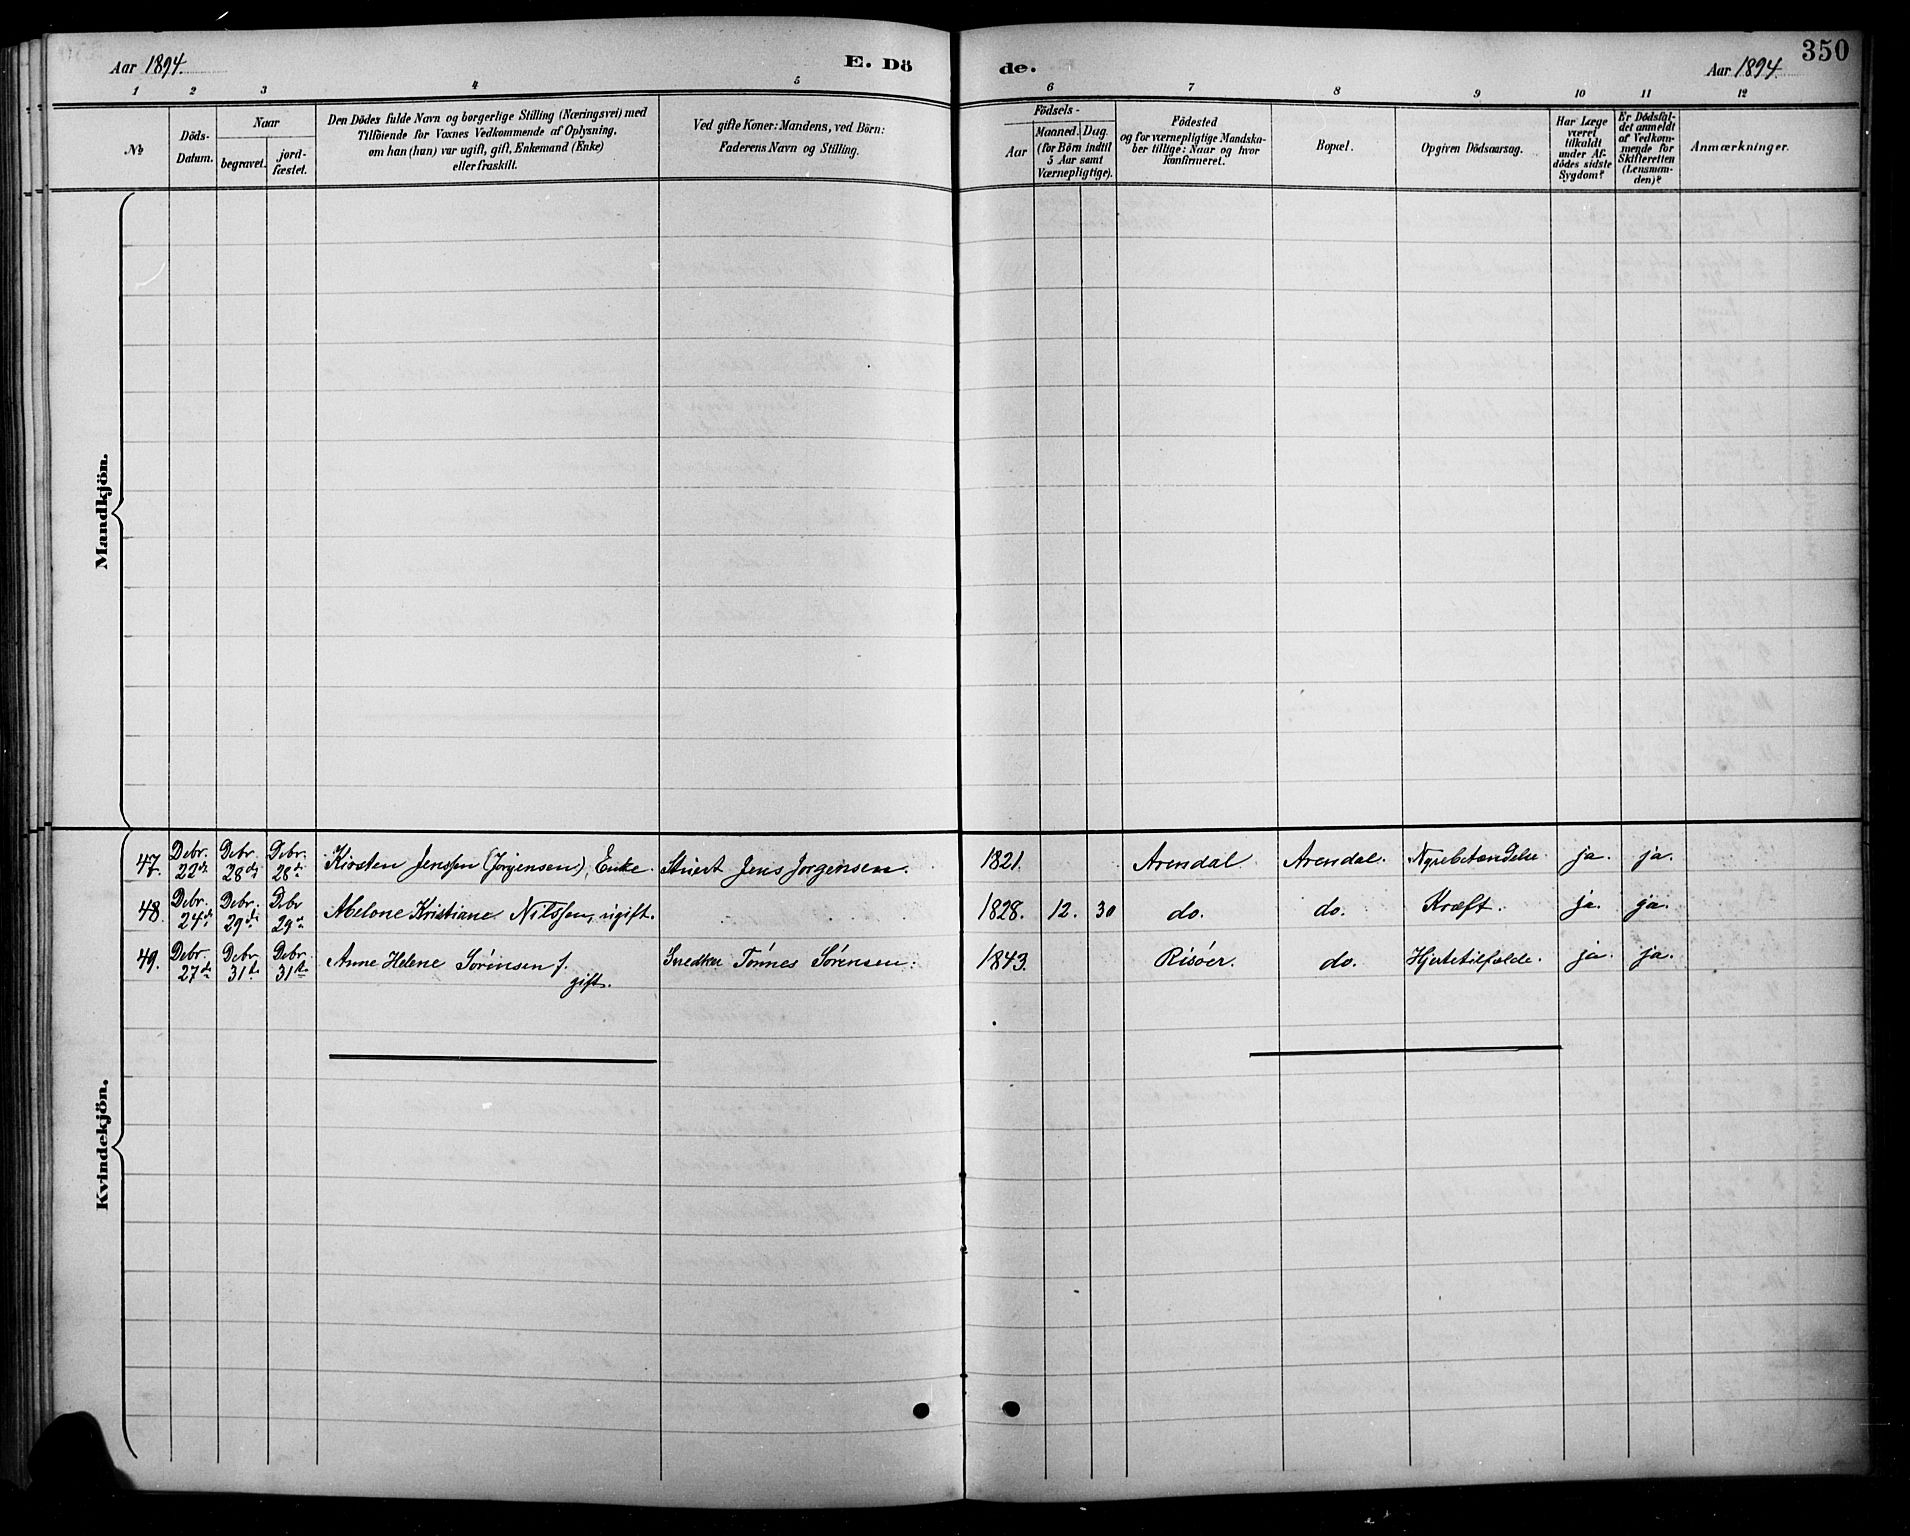 Aar 1894.
E. Dö
de.
Aar 1894.
350
1 2 3 4 5 6 7 8 9 10 11 12
№
Döds-
Datum.
Naar
begravet.
jord-
fæstet.
Den Dödes fulde Navn og borgerlige Stilling (Næringsvei) med
Tilföiende for Voxnes Vedkommende af Oplysning,
om han (hun) var ugift, gift, Enkemand (Enke)
eller fraskilt.
Ved gifte Koner: Mandens, ved Börn:
Faderens Navn og Stilling.
Födsels-
Aar
Maaned. Dag.
(for Börn indtil
5 Aar samt
Værnepligtige).
Födested
og for værnepligtige Mandska-
ber tillige: Naar og hvor
konfirmeret.
Bopæl.
Opgiven Dödsaarsag.
Har Læge
været
tilkaldt
under Af-
dödes sidste
Sygdom?
Er Dödsfal-
det anmeldt
af Vedkom-
mende for
Skifteretten
(Lensman-
den)?
Anmærkninger.
Mandkjön.
Kvindekjön.
47. Debr. 22de Debr. 28de Debr. 28de Kirsten Jenssen (Jørgensen), Enke. Stuert Jens Jørgensen. 1821. Arendal. Arendal. Nyrebetændelse. ja. ja.
48. Debr. 24de Debr. 29de Debr 29de Abelone Kristiane Nilssen, ugift. 1828. 12. 30 do. do. Kræft. ja. ja.
49. Debr. 27de Debr. 31te Debr. 31te Anne Helene Sørensen f.
gift. Snedker Tønnes Sørensen. 1843. Risøer. do. Hjertetilfælde. ja. ja.